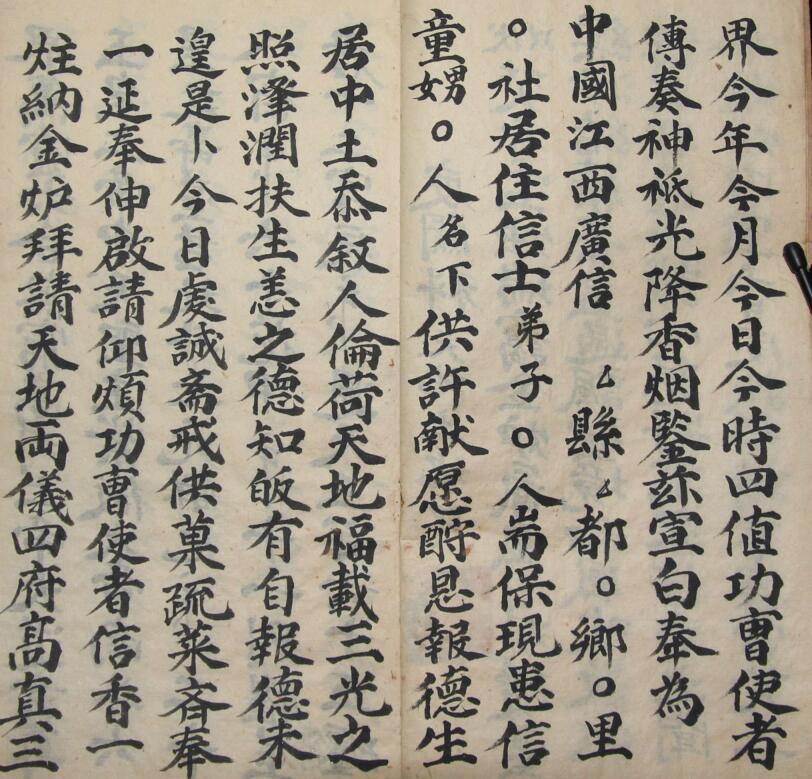 界今年今月今日今時四值功曹使者
傳奏神祇光降香烟鑒玆宣白奉為
中國江西廣信 厶縣厶都○鄉○里
○社居住信士弟子○人耑保現患信
童男女○人名下供許献愿酧恩報德生
居中土忝叙人倫荷天地福載三光之
照澤潤扶生恙之德知皈有自報德未
遑是卜今日處誠斋戒供菓疏菜斉奉
一延奉伸啟請仰煩功曹使者信香一
炷納金炉拜請天地両儀四府高真三